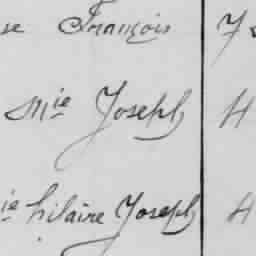 se François 7
Mie Joseph H
ie hilaire Joseph H